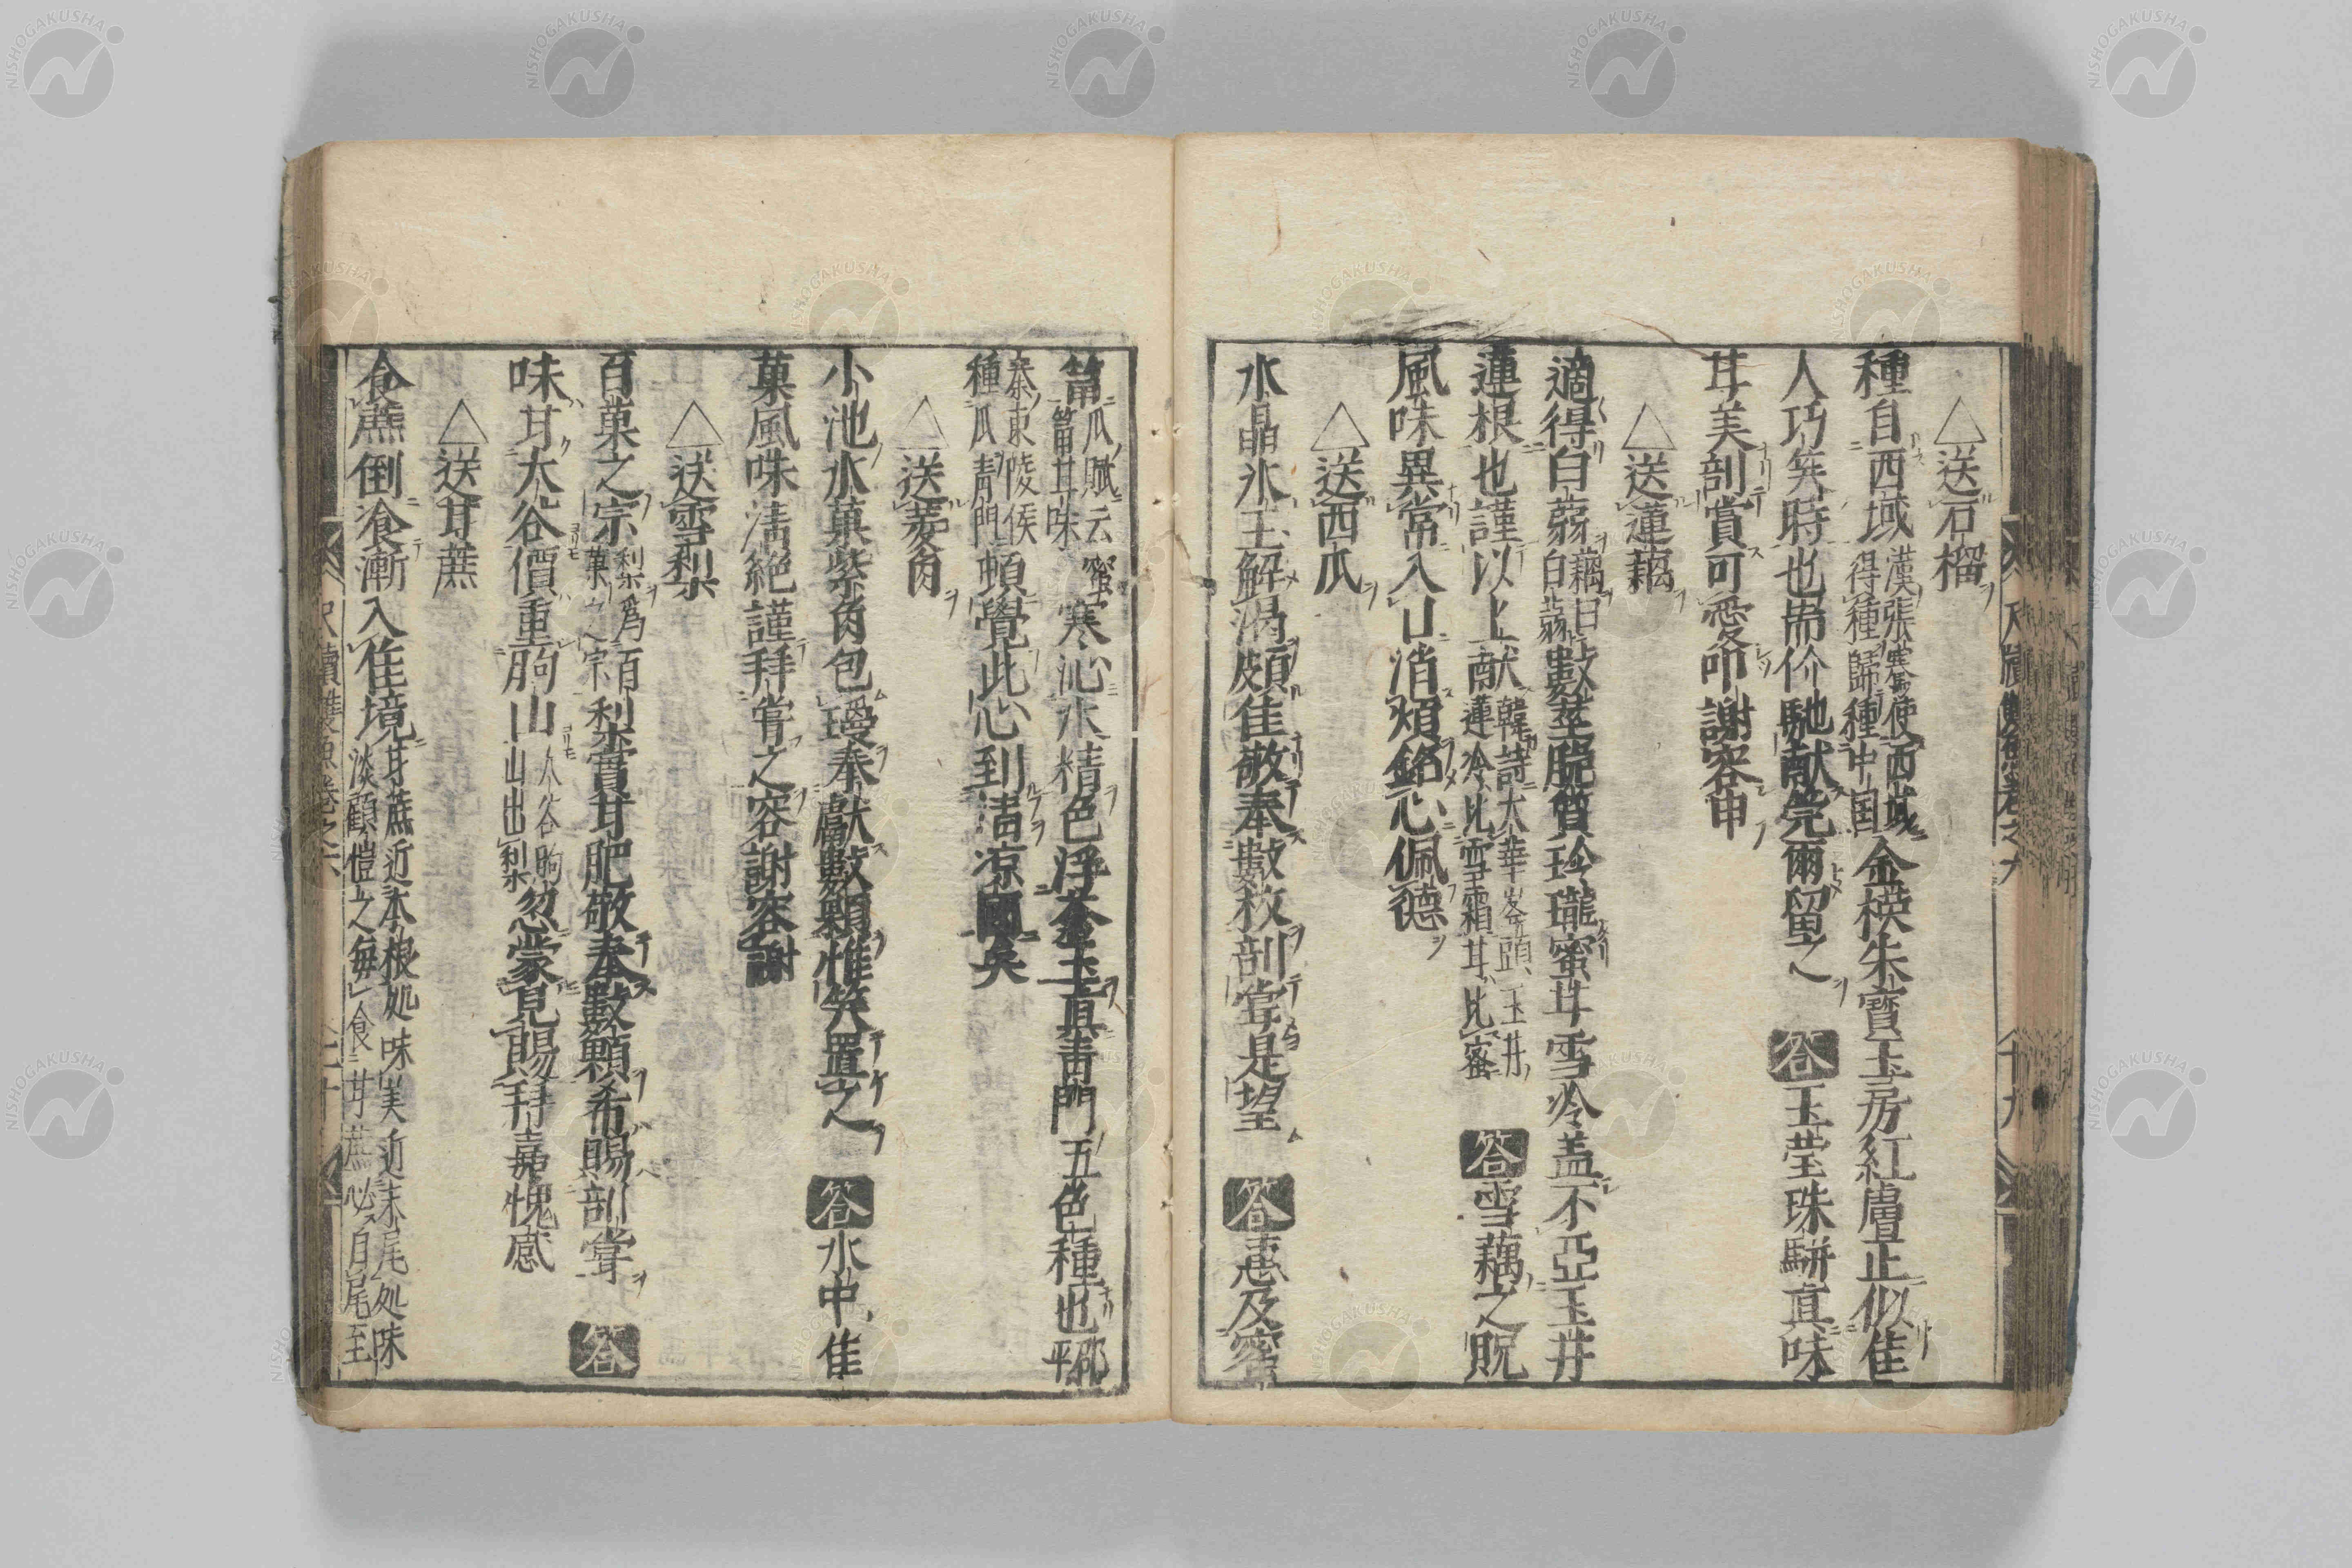 △送石榴
種自西域漢張騫使西域得種歸種中国金模朱寶玉房紅膚止似佳
人巧笑時也耑价馳献筦爾留之答玉莹珠駢真味
甘美剖賞可愛叩謝容申
△送蓮藕
適得白蒻藕曰白蒻數莖脱質玲瓏蜜甘雪冷盖不亞玉井
蓮根也謹以上献韓詩太華峯頭玉井蓮冷比雪霜甘比蜜答雪藕之貺
風味異常入口消煩銘心佩德
△送西瓜
水晶氷玉解渴頗佳敬奉數枚剖甞是望答惠及蜜
筩瓜賦云蜜筩甘味寒沁水精色浮蒼玉真靑門五色種也邵平
秦東陵侯種瓜靑門頓覺此心到清凉國矣
△送菱角
小池水菓紫角包璦奉獻數顆惟笑置之答水中佳
菓風味清絶謹拜甞之容謝容謝
△送雪梨
百菓之宗梨爲百菓之宗梨實甘肥敬奉數顆希賜剖甞答
味甘大谷價重朐山大谷朐山出梨忽蒙見賜拜嘉愧感
△送甘蔗
食蔗倒飡漸入佳境甘蔗近本根処味美近末尾処味淡顧愷之每食甘蔗必自尾至
尺牘雙魚卷之六